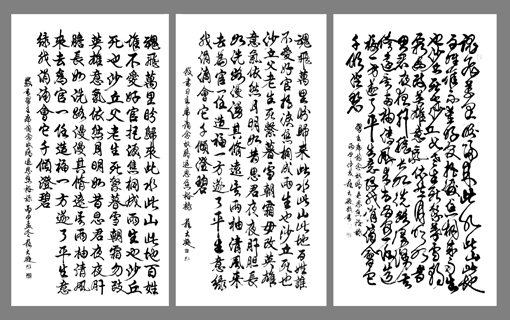 魂飛萬里盼歸來此水此山此地百姓
誰不愛好官把淚焦桐成雨生也沙丘
死也沙丘父老生死繫暮雪朝霜毋改
英雄意氣依然月明如昔思君夜夜肝
膽長如洗路漫漫其修遠矣兩袖清風
來去為官一任造福一方遂了平生意
綠我涓滴會它千頃澄碧
敬書習主席詞念奴嬌追思焦裕祿
魂飛萬里盼歸來此水此山此地百姓誰
不愛好官把淚焦桐成雨生也沙丘死也
沙丘父老生死繫暮雪朝霜毋改英雄
意氣依然月明如昔思君夜夜肝膽長
如洗路漫漫其修遠矣兩袖清風來
去為官一任造福一方遂了平生意綠
我涓滴會它千頃澄碧
敬書習主席詞念奴嬌追思焦裕祿
魂飛萬里盼歸來此水此山此地
百姓誰不愛好官把淚焦桐成雨生
也沙丘死也沙丘父老生死繫暮雪朝
霜毋改英雄意氣依然月明如昔
思君夜夜肝膽長如洗路漫漫其
修遠矣兩袖清風來去為官一任造
福一方遂了平生意綠我涓滴會它
千頃澄碧